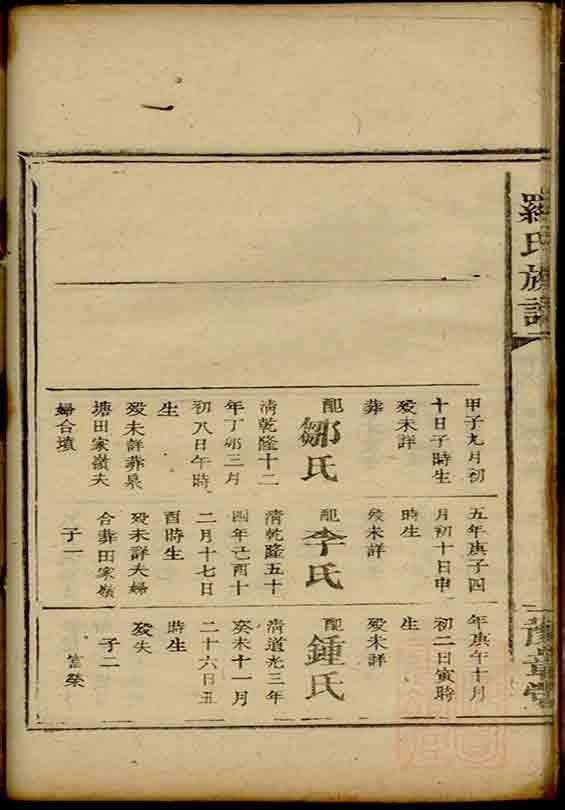 羅氏族譜
豫章堂
甲子九月初
十日子時生
歿未詳
葬
配
鄒氏
清乾隆十二
年丁卯三月
初八日午時
生
歿未詳葬泉
塘田家嶺夫
婦合墳
五年庚子四
月初十日申
時生
歿未詳
配
李氏
清乾隆五十
四年己酉十
二月十七日
酉時生
歿未詳夫婦
合葬田家嶺
子一
年庚午十月
初二日寅時
生
歿未詳
配
鍾氏
清道光三年
癸未十一月
二十六日丑
時生
歿失
子二
富榮